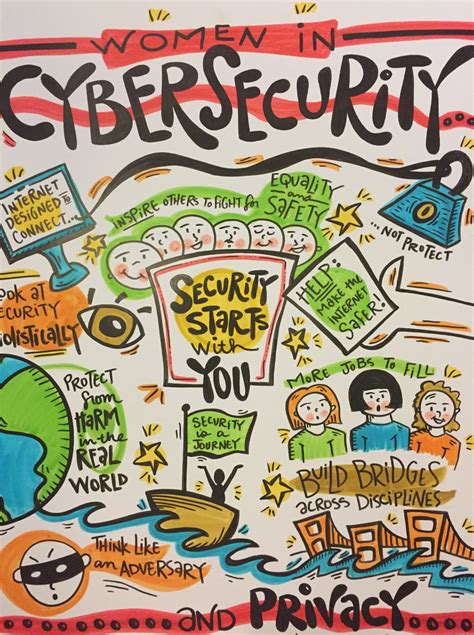 WOMEN IN
CYBERSECURITY
INTERNET
DESIGNED TO
CONNECT...
INSPIRE OTHERS TO FIGHT for
EQUALITY
and
SAFETY
... NOT PROTECT
LOOK AT
SECURITY
HOLISTICALLY
SECURITY
STARTS
with
YOU
HELP
MAKE THE
INTERNET
SAFER!
PROTECT
from
HARM
in the
REAL
WORLD
SECURITY
is a
JOURNEY
MORE JOBS TO FILL
BUILD BRIDGES
across DISCIPLINES
THINK LIKE
an ADVERSARY
AND PRIVACY